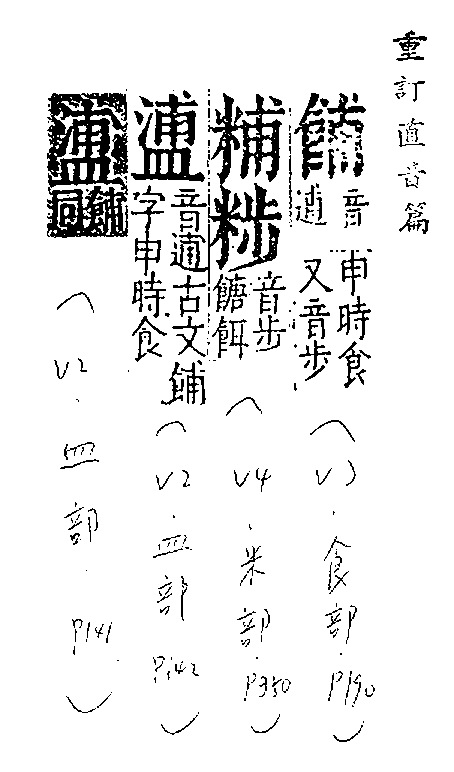 重訂直音篇
餔 音逋 申時食又音步
(V3.食部.P190)
䊇𥹴 音步餹餌
(V4.米部.P350)
𥂈 音逋古文餔字申時食
(V2.皿部.P142)
同餔
(V2.皿部.P141)